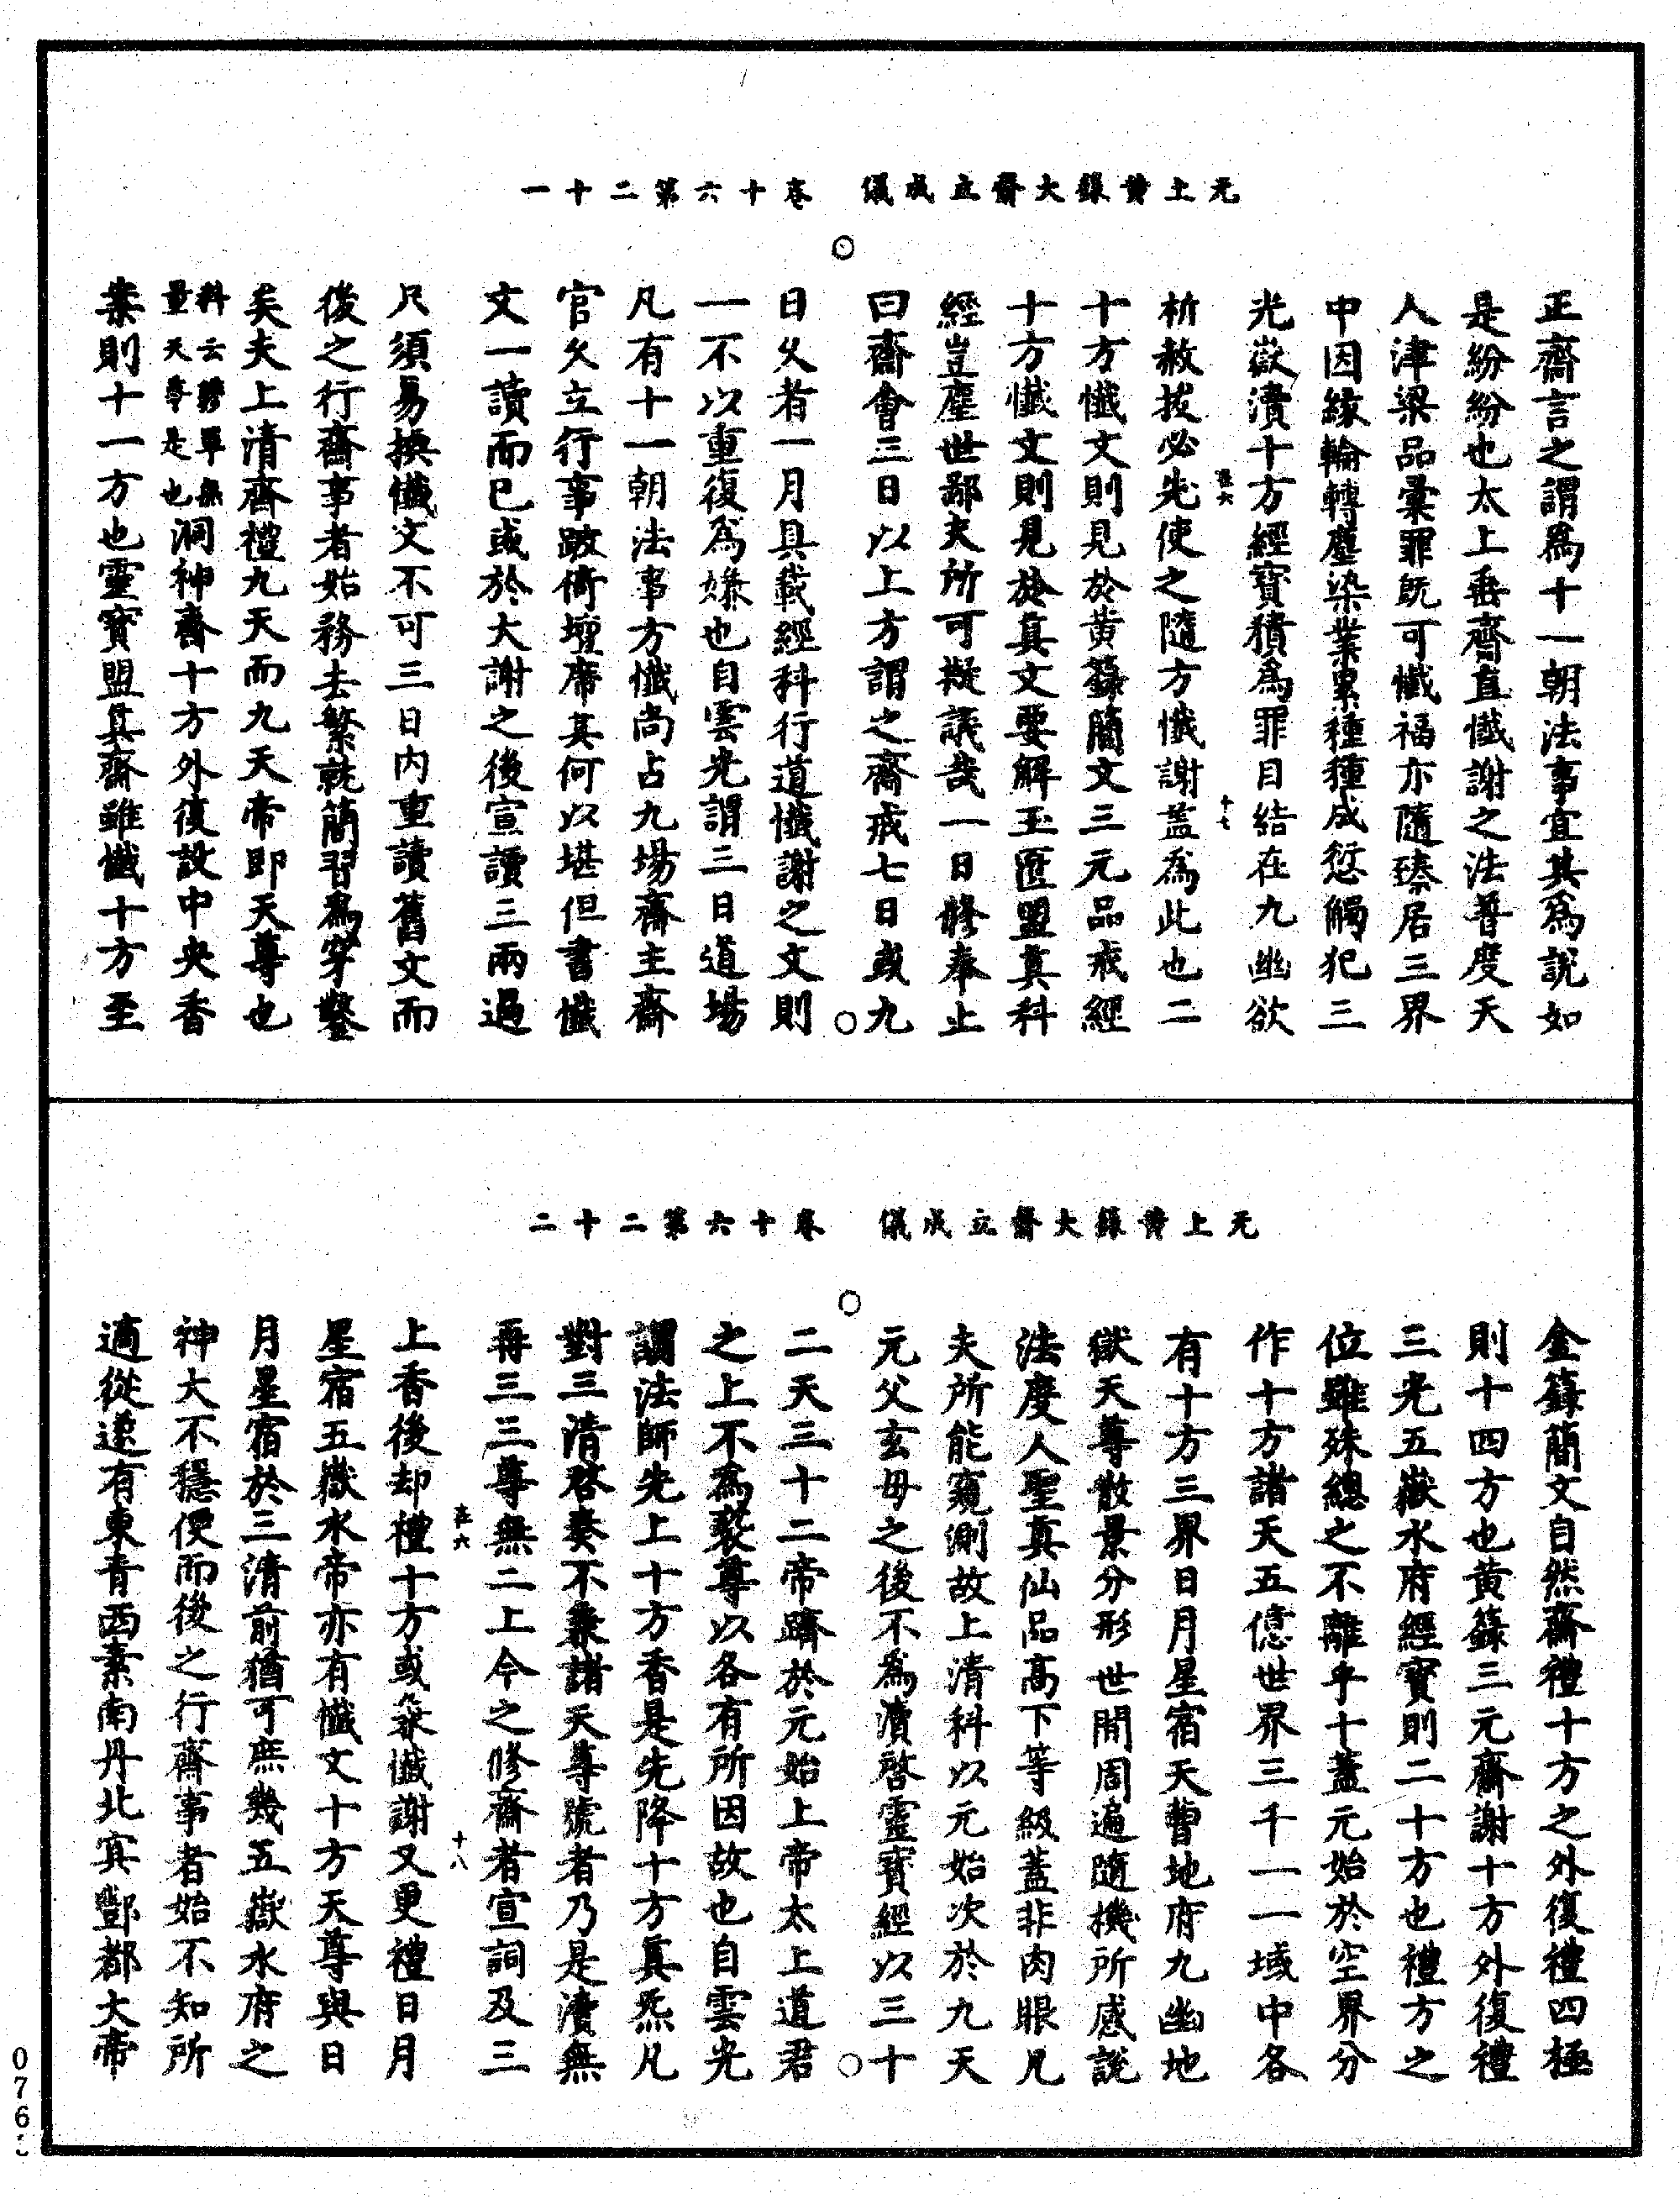 元上黃籙大齋立成儀　卷十六第二十一
正齋言之謂爲十一朝法事宜其爲說如
是紛紛也太上垂齋直懺謝之法普度天
人津梁品彙罪既可懺福亦隨臻居三界
中因緣輪轉塵染業累種種成愆觸犯三
光嶽瀆十方經寶積爲罪目結在九幽欲
在六　十七
析赦拔必先使之隨方懺謝蓋爲此也二
十方懺文則見於黃籙簡文三元品戒經
十方懺文則見於真文要解玉匱盟真科
經豈塵世鄙夫所可擬議哉一日修奉止
曰齋會三日以上方謂之齋戒七日或九
日乆者一月具載經科行道懺謝之文則
一不以重復爲嫌也自雲光謂三日道場
凡有十一朝法事方懺尚占九場齋主齋
官乆立行事跛倚壇席其何以堪但書懺
文一讀而已或於大謝之後宣讀三兩過
只須易換懺文不可三日內重讀舊文而
後之行齋事者始務去繁就簡習爲穿鑿
矣夫上清齊禮九天而九天帝即天尊也
科云勝單無量天尊是也洞神齋十方外復設中央香
案則十一方也靈寶盟真齋雖懺十方至
元上黃籙大齋立成儀　卷十六第二十二
金籙簡文自然齋禮十方之外復禮四極
則十四方也黃籙三元齋謝十方外復禮
三光五嶽水府經寶則二十方也禮方之
位雖殊總之不離乎十蓋元始於空界分
作十方諸天五億世界三千一一域中各
有十方三界日月星宿天曹地府九幽地
獄天尊散景分形世間周遍隨機所感說
法度人聖真仙品高下等級蓋非肉眼凡
夫所能窺測故上清科以元始次於九天
元父玄母之後不爲瀆啓靈寶經以三十
二天三十二帝躋於元始上帝太上道君
之上不爲褻尊以各有所因故也自雲光
謂法師先上十方香是先降十方真炁凡
對三清啓奏不兼諸天尊號者乃是瀆無
再三三尊無二上今之修齋者宣詞及三
在六　十八
上香後却禮十方或眾懺謝又更禮日月
星宿五嶽水帝亦有懺文十方天尊與日
月星宿於三清前猶可庶幾五嶽水府之
神大不穩便而後之行齋事者始不知所
適從遂有東青西素南丹北寘酆都大帝